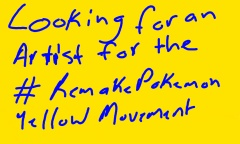 Looking for an
Artist for the
# RemakePokemon
Yellow Movement